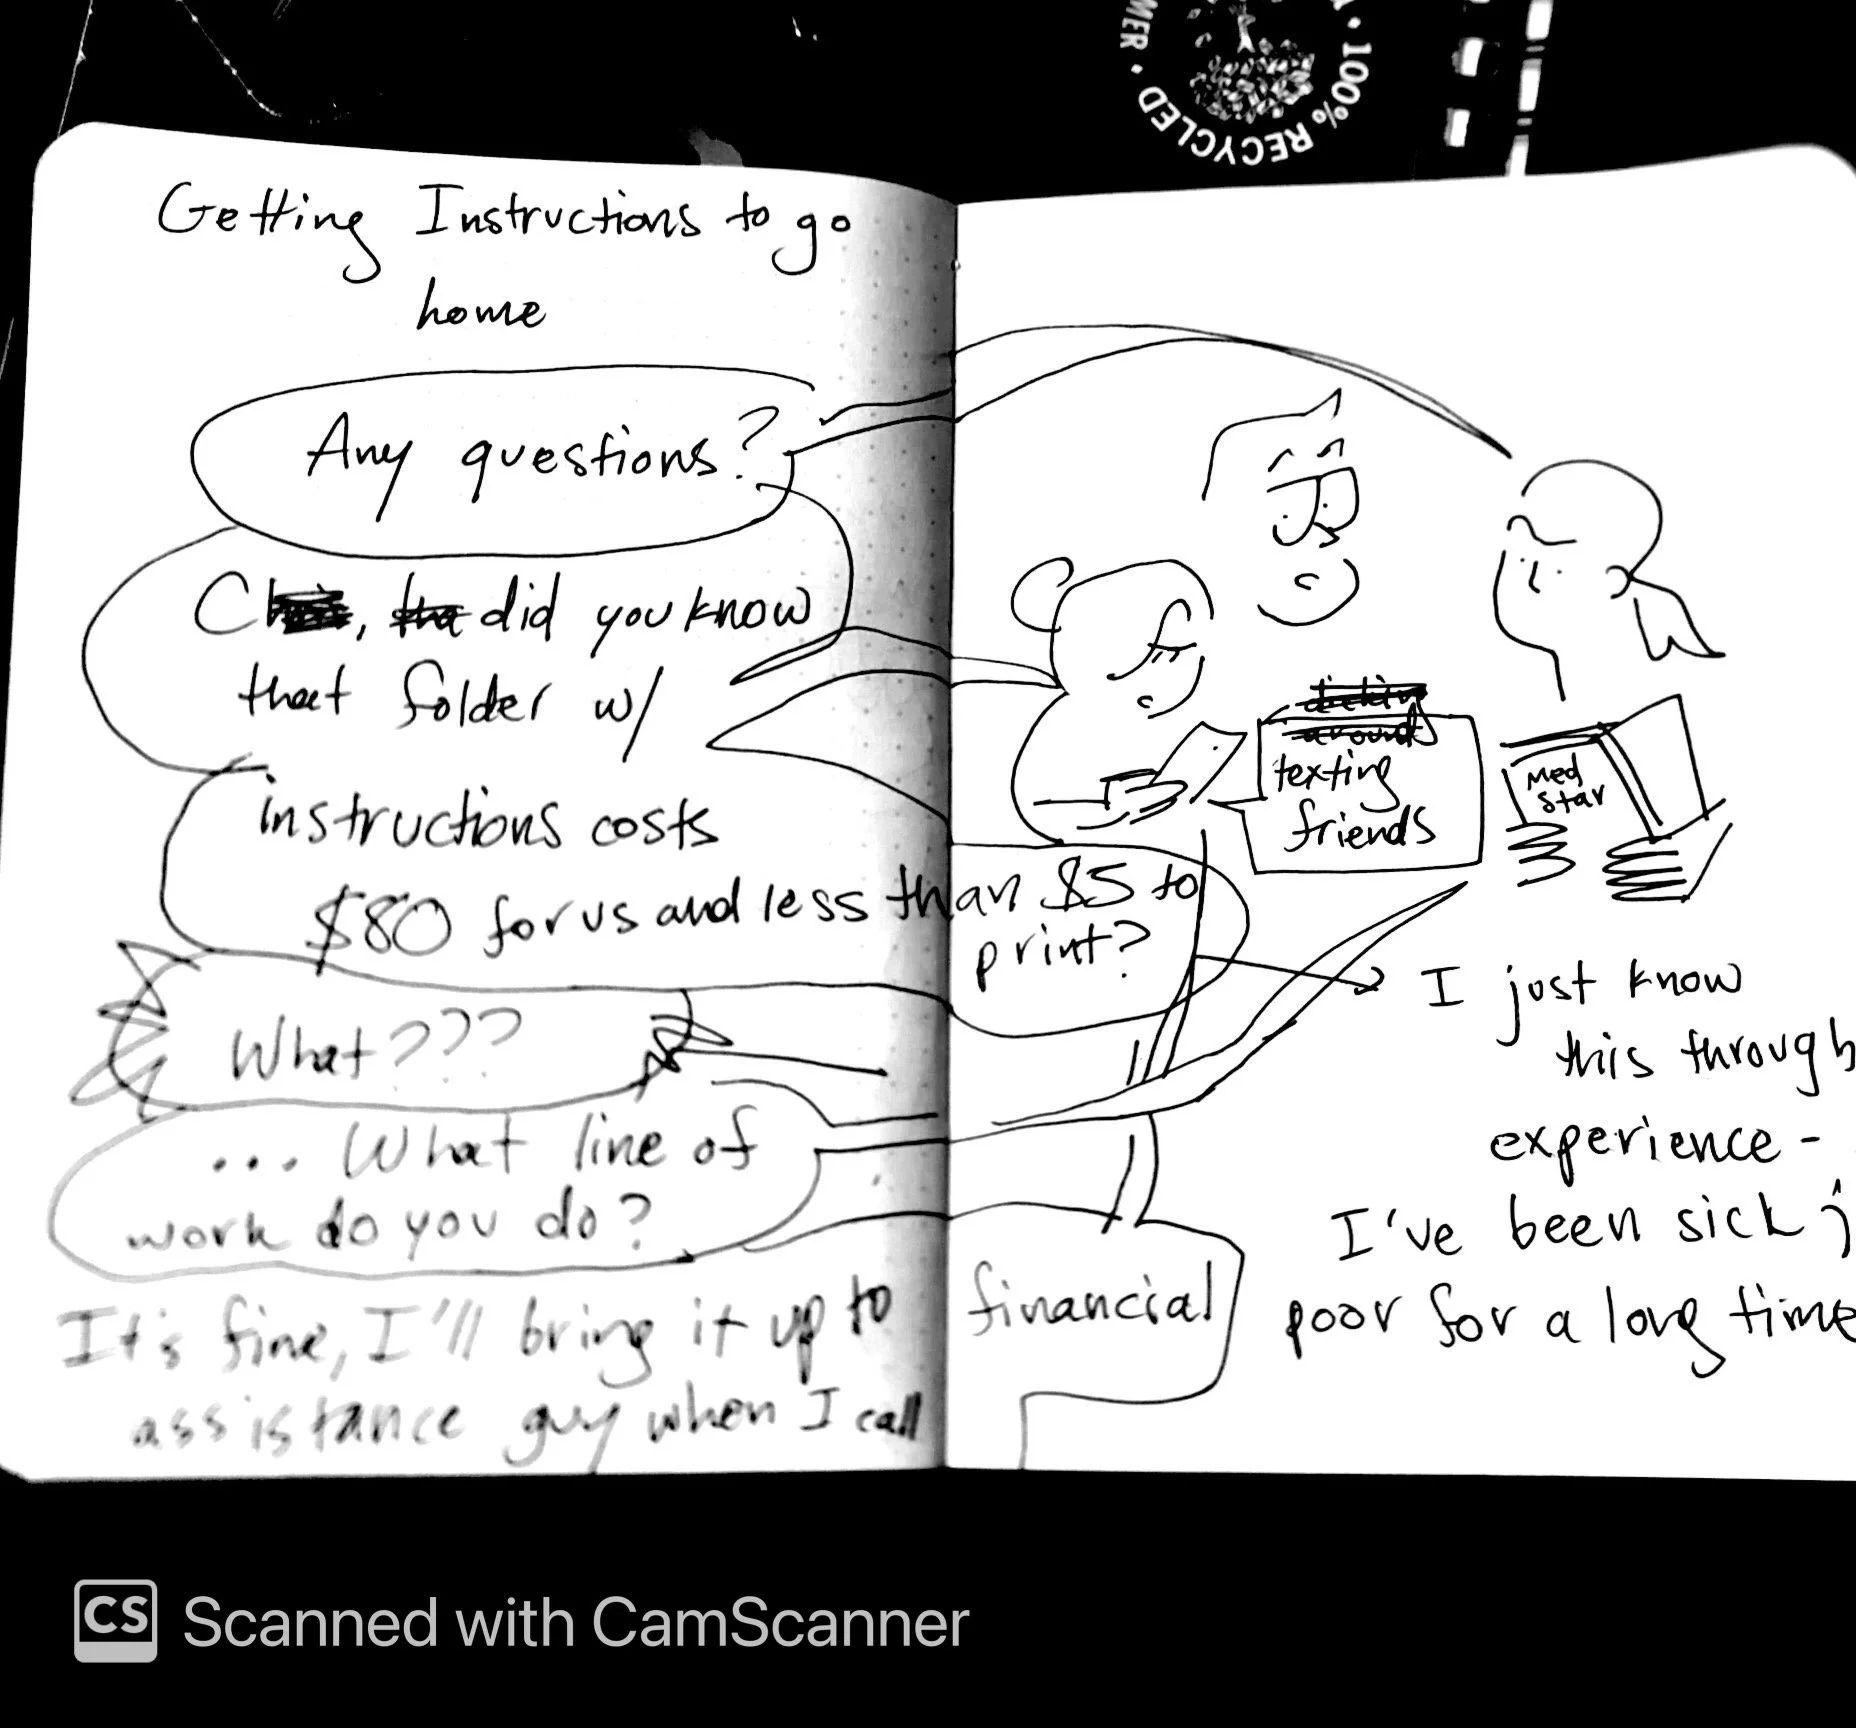 MER · RECYCLED · 100% RECYCLED
Getting Instructions to go
home
Any questions?
did you know
that folder w/
instructions costs
$80 for us and less than $5 to
print?
What???
... What line of
work do you do?
It's fine, I'll bring it up to financial
assistance guy when I call
texting
friends
Med
Star
I just know
this through
experience -
I've been sick &
poor for a long time
CS Scanned with CamScanner